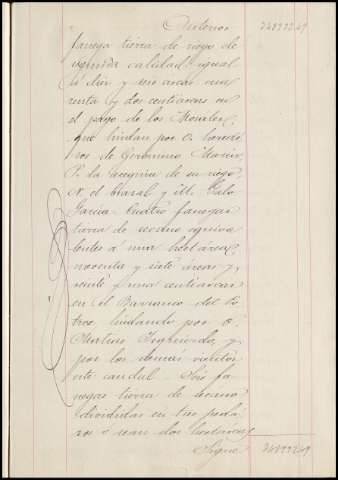 Anterior 74892249
fanega tierra de riego de
segunda calidad igual
á diez y seis areas cua
renta y dos centiareas en
el pago de los Morales,
que lindan por O.
de Geronimo Marin,
P. la acequia de su riego,
N. el Marzal y M. Galo
Garcia. Cuatro fanegas
tierra de secano equiva
lentes á una hectárea,
noventa y siete áreas y
veinte y una centiareas
en el Barranco del Po
tree lindando por O.
Matias Izquierdo, y
por los demás vientos
este caudal. Seis fa
negas tierra de secano
divididas en tres peda
zos ó sean dos hectareas
Sigue 74892249